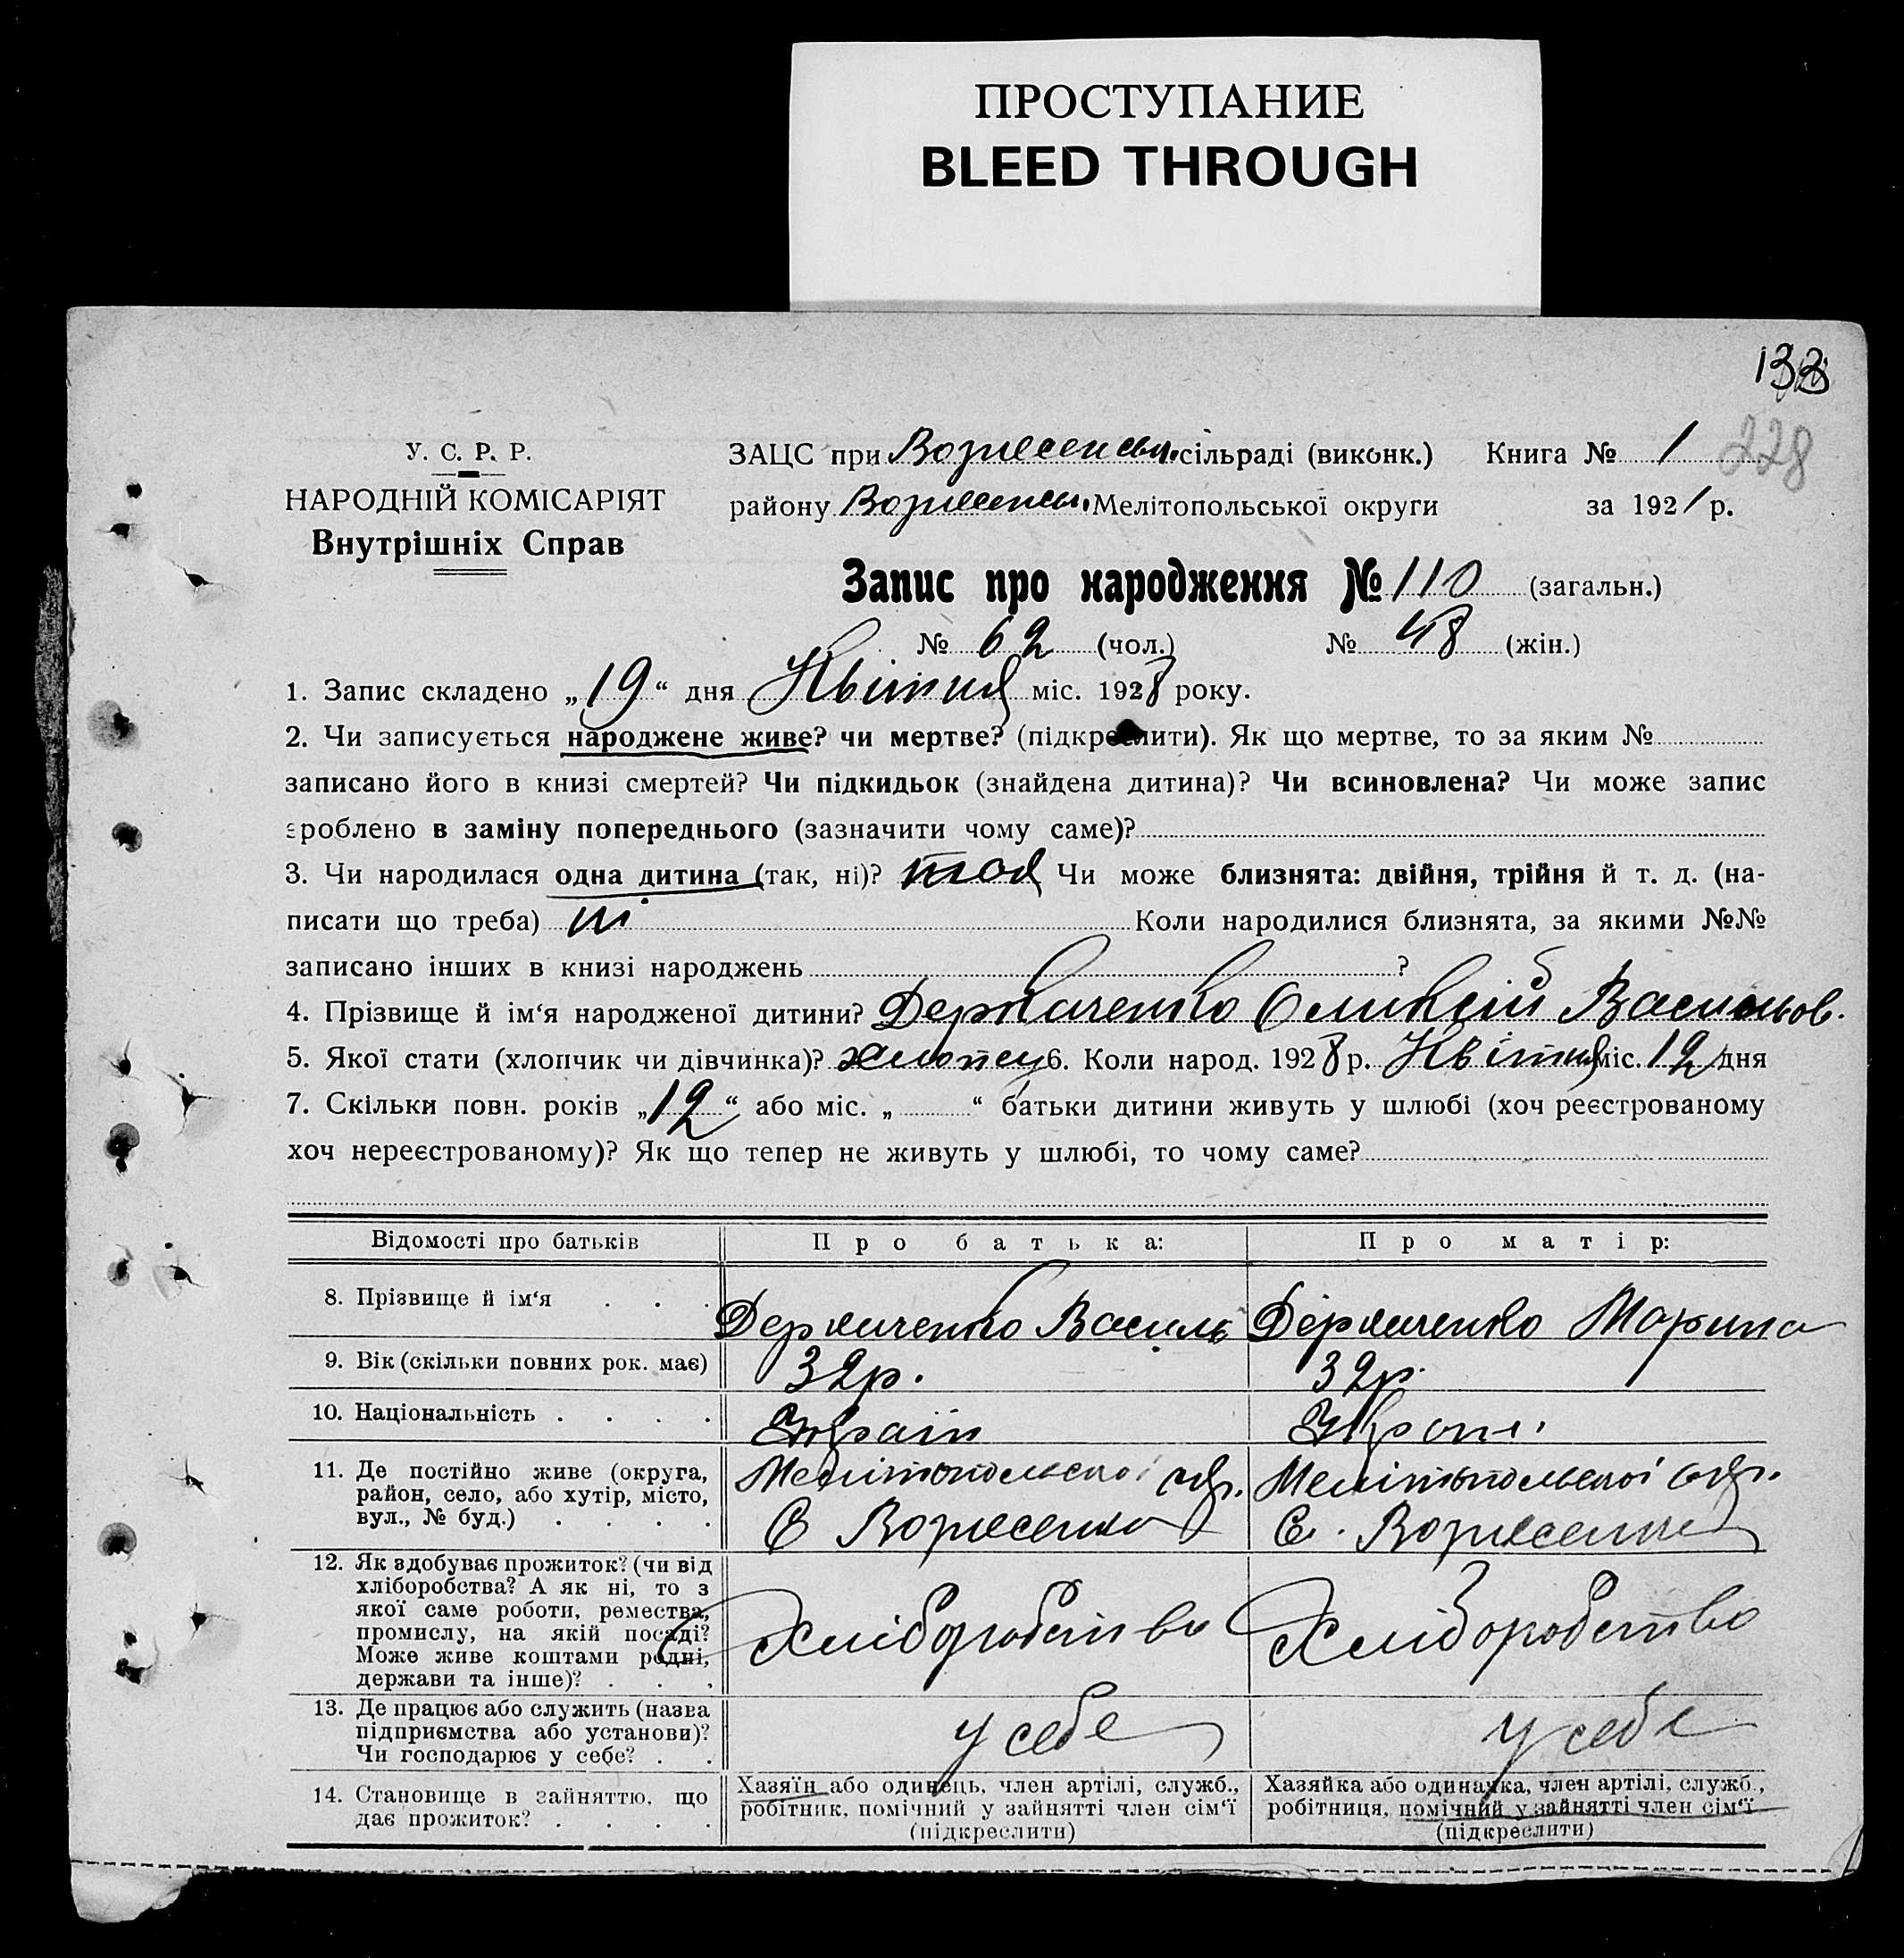 ПРОСТУПАНИЕ
BLEED THROUGH
133
228
У. С. Р. Р.
НАРОДНІЙ КОМІСАРІЯТ
Внутрішніх Справ
ЗАЦС при Вознесенськ. сільраді (виконк.) Книга № 1
району Вознесенськ. Мелітопольської округи за 1921 р.
Запис про народження № 110 (загальн.)
№ 62 (чол.) № 48 (жін.)
1. Запис складено „19“ дня Квітня міс. 1928 року.
2. Чи записується народжене живе? чи мертве? (підкреслити). Як що мертве, то за яким №
записано його в книзі смертей? Чи підкидьок (знайдена дитина)? Чи всиновлена? Чи може запис
зроблено в заміну попереднього (зазначити чому саме)?
3. Чи народилася одна дитина (так, ні)? Чи може близнята: двійня, трійня й т. д. (на-
писати що треба) ні Коли народилися близнята, за якими №№
записано інших в книзі народжень ?
4. Прізвище й ім‘я народженої дитини? Оликсій Васильов.
5. Якої стати (хлопчик чи дівчинка)? хлопец 6. Коли народ. 1928 р. Квітня міс. 12 дня
7. Скільки повн. років „12“ або міс. „ “ батьки дитини живуть у шлюбі (хоч реєстрованому
хоч нереєстрованому)? Як що тепер не живуть у шлюбі, то чому саме?
Відомості про батьків Про батька: Про матір:
8. Прізвище й ім‘я . . . Василь Марина
9. Вік (скільки повних рок. має) 32 р. 32 р.
10. Національність . . . . Україн Україн.
11. Де постійно живе (округа, район, село, або хутір, місто, вул., № буд.) . . . . Мелітопольської окр. С Вознесенка Мелітопольської окр. С. Вознесенка
12. Як здобуває прожиток? (чи від хліборобства? А як ні, то з якої саме роботи, ремества, промислу, на якій посаді? Може живе коштами родні, держави та інше)? . . . Хліборобство Хліборобство
13. Де працює або служить (назва підприємства або установи)? Чи господарює у себе? . . у себе у себе
14. Становище в зайняттю, що дає прожиток? . . . . Хазяїн або одинець, член артілі, служб., робітник, помічний у зайнятті член сім‘ї (підкреслити) Хазяйка або одиначка, член артілі, служб., робітниця, помічний у зайнятті член сім‘ї (підкреслити)